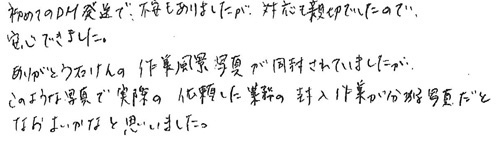 初めてのDM発送で、不安もありましたが、対応も親切でしたので、
安心できました。
ありがとうたけんの作業風景写真が同封されていましたが、
このような写真で実際の依頼した業務の封入作業が分かる写真だと
なおよいかなと思いいました。